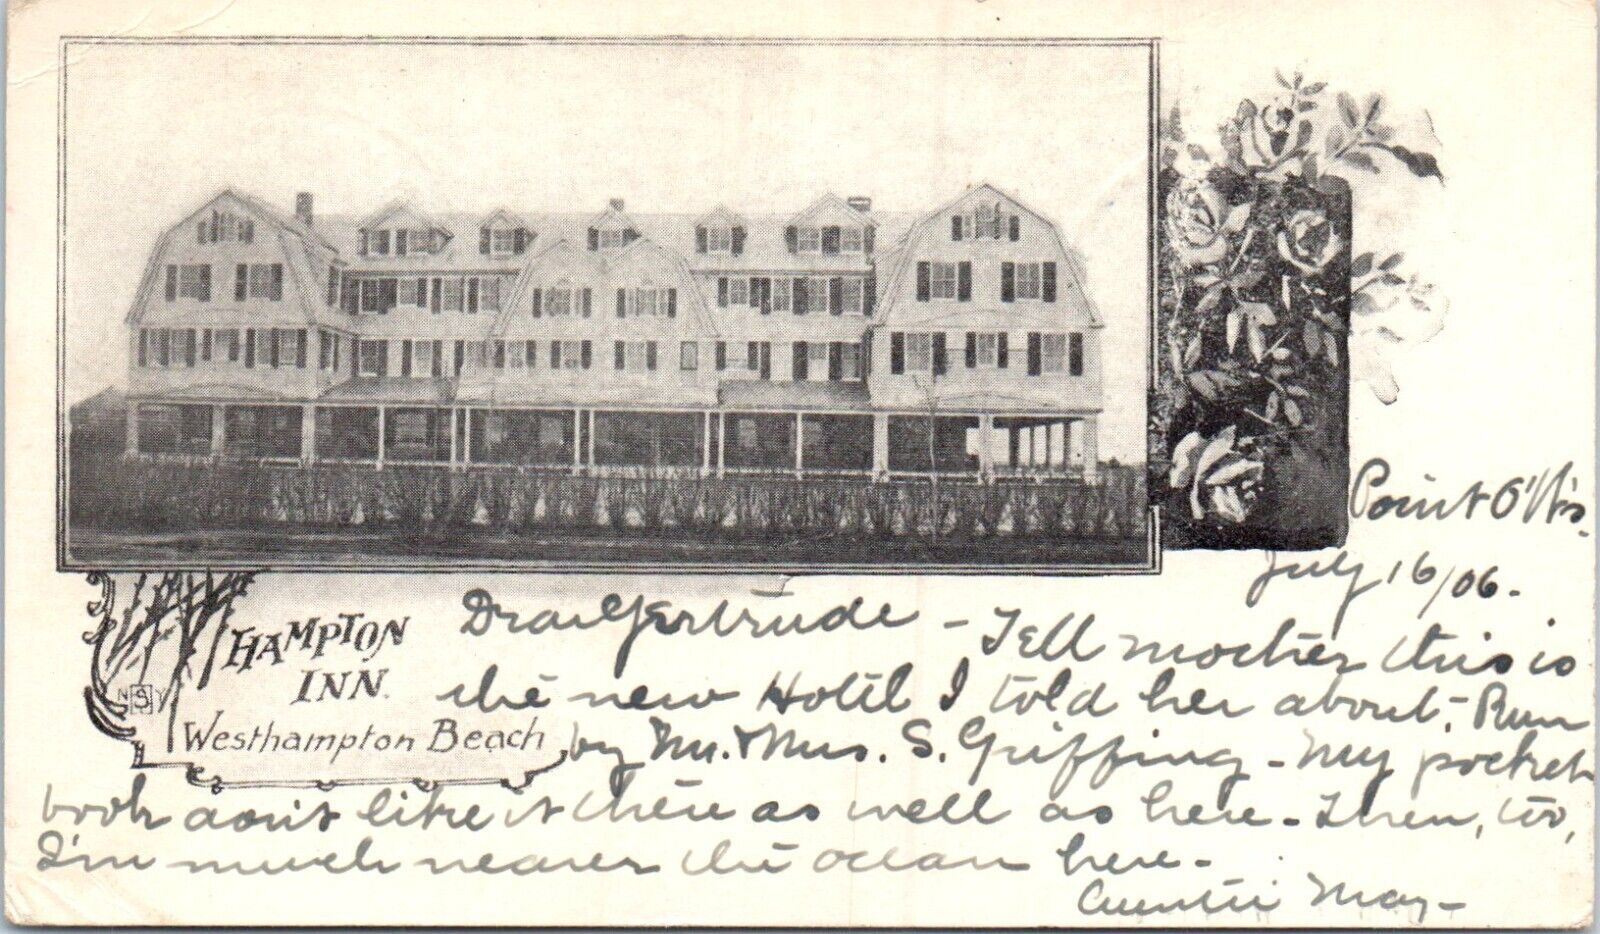 Point O'Ws.
July 16/06.
HAMPTON
INN.
Westhampton Beach
NSY
Dear Gertrude - Tell mother this is
the new Hotel I told her about. Run
by Mr. & Mrs. S. Griffing - My pocket
book don't like it there as well as here - Then, too,
I'm much nearer the ocean here -
Auntie May -